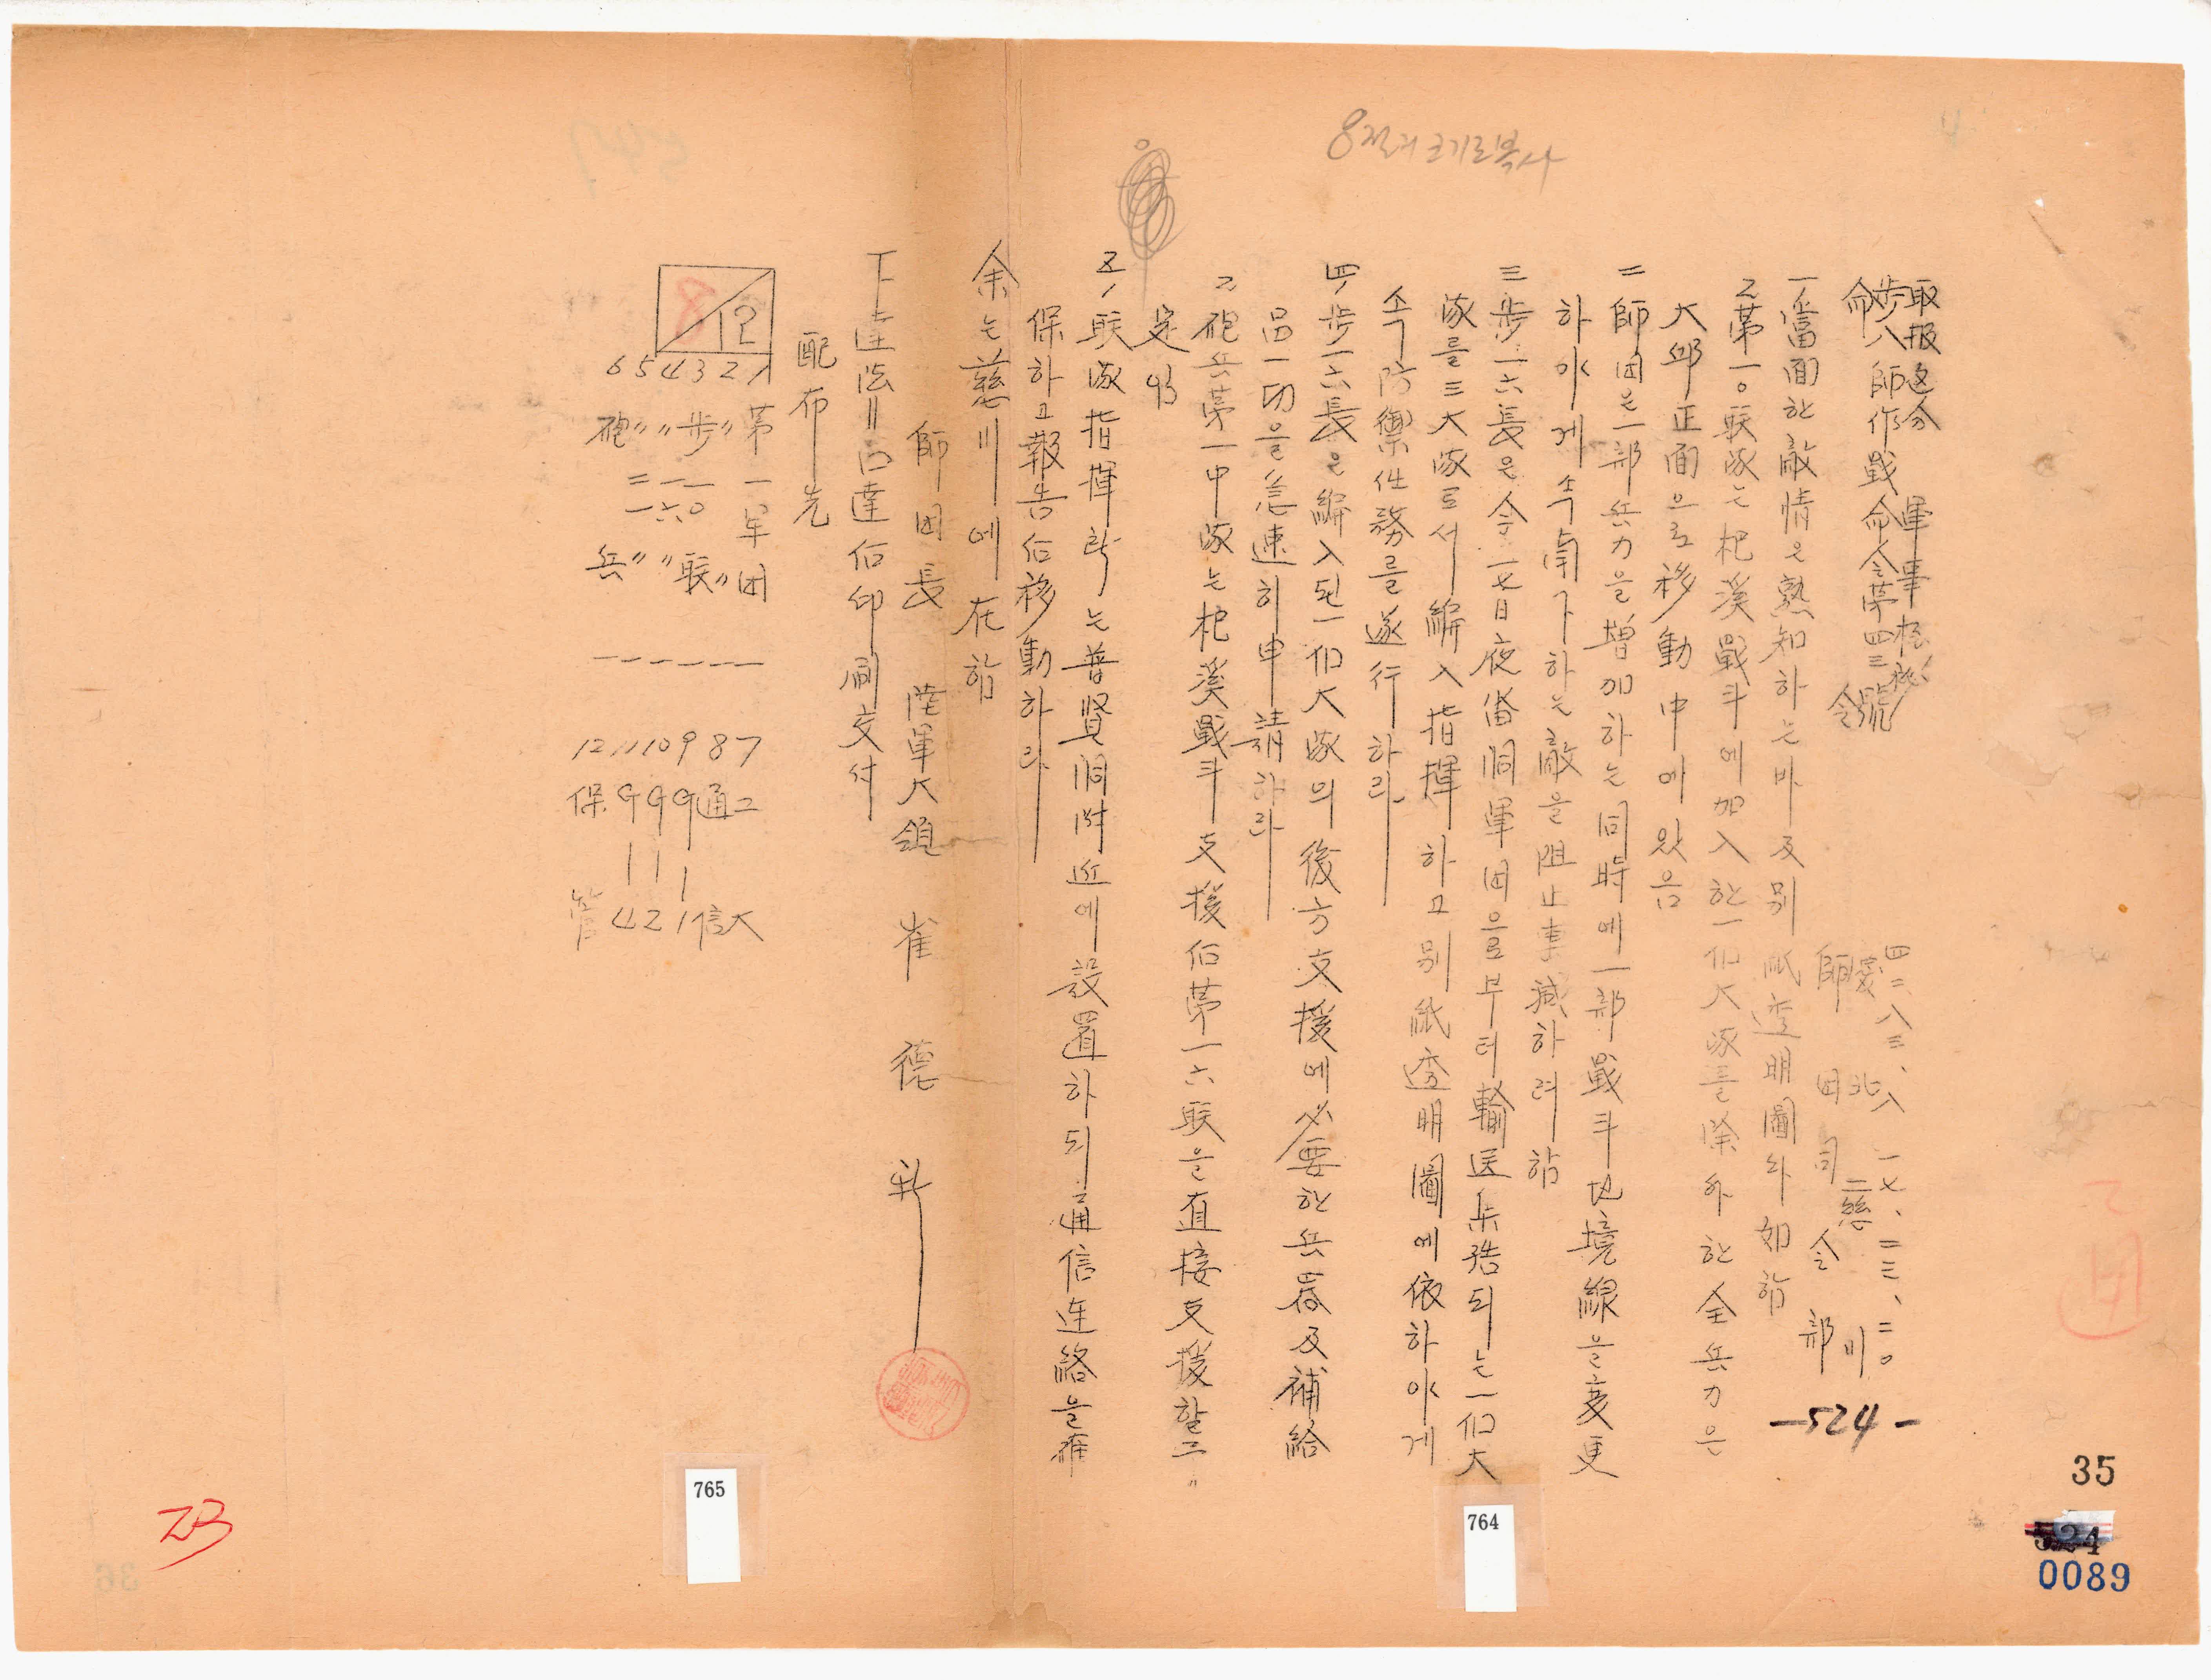 8절지크기로복사
取扱区分 軍事極秘
步八師作戰命令第四三號
命令
四二八三、八、一七、二三、二〇
慶北 慈川
師団司令部
一、1 當面한敵情은熟知하는바及別紙透明圖와如함
2 第一〇联隊는杞溪戰斗에加入한一個大隊를除外한全兵力은
大邱正面으로移動中에있음
二 師団은一部兵力을增加하는同時에一部戰斗地境線을变更
하야게속南下하는敵을阻止 滅하려함
三 步一六長은今一七日夜 洞軍団으로부터輸送集結되는一個大
隊를三大隊로서編入指揮하고別紙透明圖에依하야게
속防禦任務를遂行하라
四 1 步一六長은編入된一個大隊의後方支援에必要한兵器及補給
品一切을急速히申請하라
2 砲兵第一中隊는杞溪戰斗支援后第一六联을直接支援할豫
定임
五 1 联隊指揮所는普賢洞附近에設置하되通信連絡을確
保하고報告后移動하라
余는慈川에在함
師団長 陸軍大領 崔德新
下達法=口達后印刷交付
配布先
1 第一軍団
2 〃 〃
3 步一〇联
4 〃一六〃
5 〃二一〃
6 砲 兵
7 工 大
8 通 信
9 G 1
10 G 2
11 G 4
12 保 管
8
-524-
35
524
0089
764
765
23
36